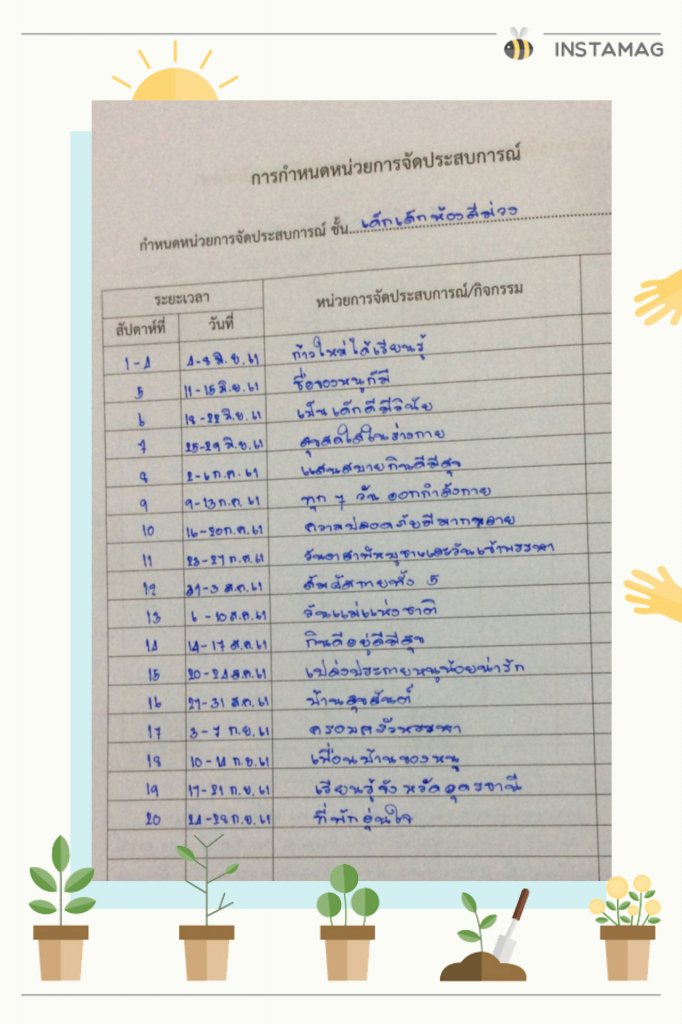 INSTAMAG
การกำหนดหน่วยการจัดประสบการณ์
กำหนดหน่วยการจัดประสบการณ์ ชั้น เด็กเล็กห้องสีม่วง
ระยะเวลา หน่วยการจัดประสบการณ์/กิจกรรม
สัปดาห์ที่ วันที่
1-4 4-8 มิ.ย. 61 ก้าวใหม่ได้เรียนรู้
5 11-15 มิ.ย. 61 ชื่อของหนูก็มี
6 18-22 มิ.ย. 61 เป็นเด็กดีมีวินัย
7 25-29 มิ.ย. 61 สุขสดใสในร่างกาย
8 2-6 ก.ค. 61 แสนสบายกินดีมีสุข
9 9-13 ก.ค. 61 ทุก 7 วัน ออกกำลังกาย
10 16-20 ก.ค. 61 ความปลอดภัยมีมากหลาย
11 23-27 ก.ค. 61 วันอาสาฬหบูชาและวันเข้าพรรษา
12 31-3 ส.ค. 61 สัมผัสกายทั้ง 5
13 6-10 ส.ค. 61 วันแม่แห่งชาติ
14 14-17 ส.ค. 61 กินดีอยู่ดีมีสุข
15 20-24 ส.ค. 61 เปล่งประกายหนูน้อยน่ารัก
16 27-31 ส.ค. 61 บ้านสุขสันต์
17 3-7 ก.ย. 61 ครอบครัวหรรษา
18 10-14 ก.ย. 61 เพื่อนบ้านของหนู
19 17-21 ก.ย. 61 เรียนรู้จังหวัดอุดรธานี
20 24-28 ก.ย. 61 ที่พักอุ่นใจ